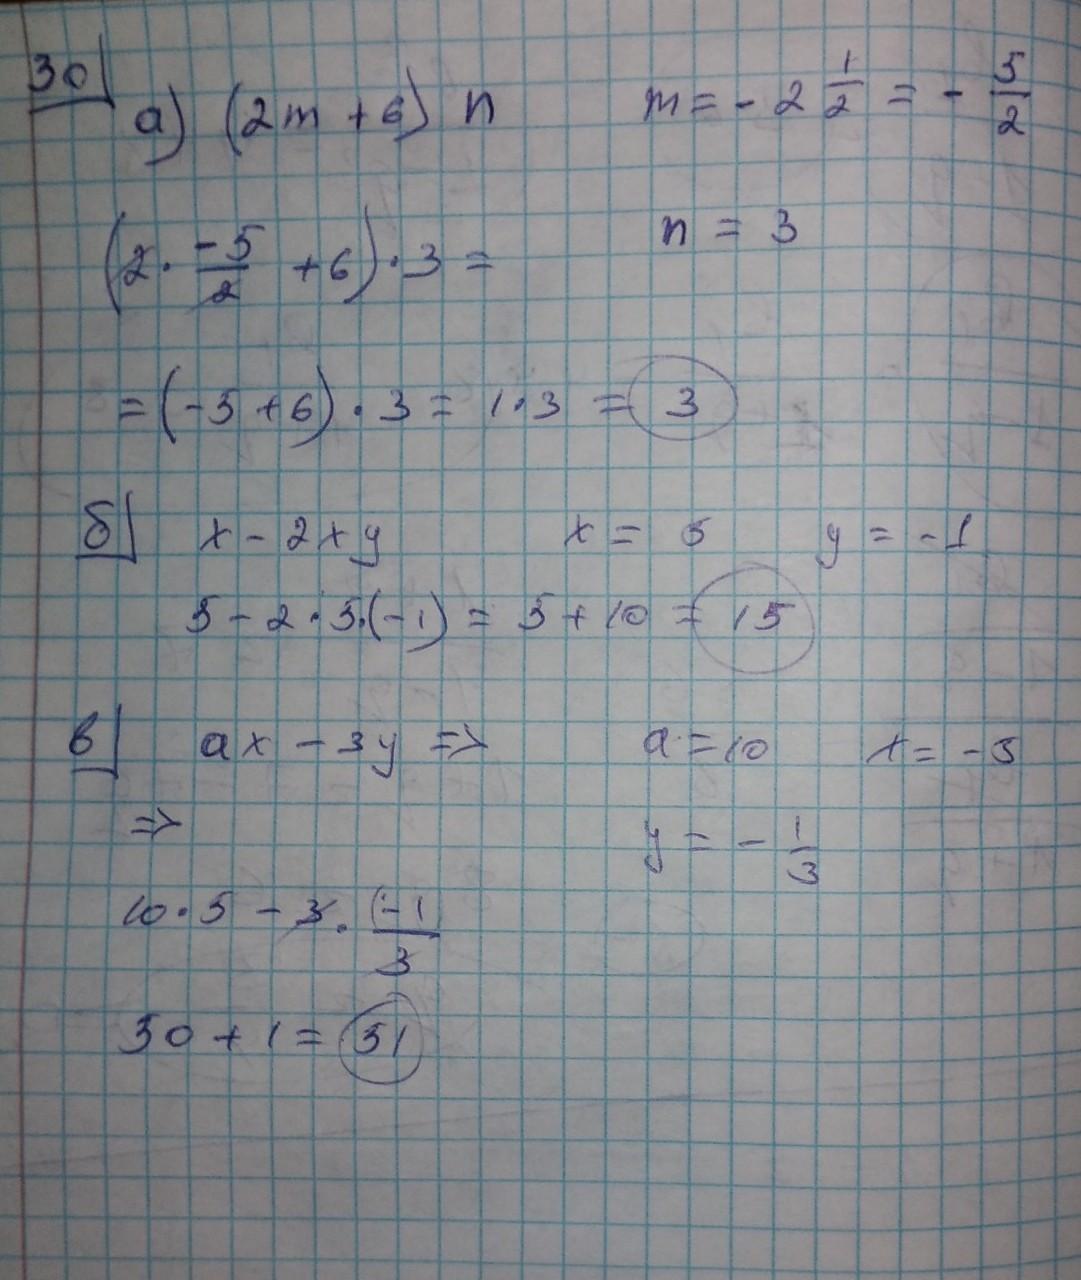 30
а) (2m + 6) n m = - 2 1/2 = - 5/2
n = 3
(2 · -5/2 + 6) · 3 =
= (-5 + 6) · 3 = 1 · 3 = 3
б x - 2xy x = 5 y = -1
5 - 2 · 5 · (-1) = 5 + 10 = 15
в ax - 3y => a = 10 x = -5
=> y = - 1/3
10 · 5 - 3 · (-1/3
50 + 1 = 51